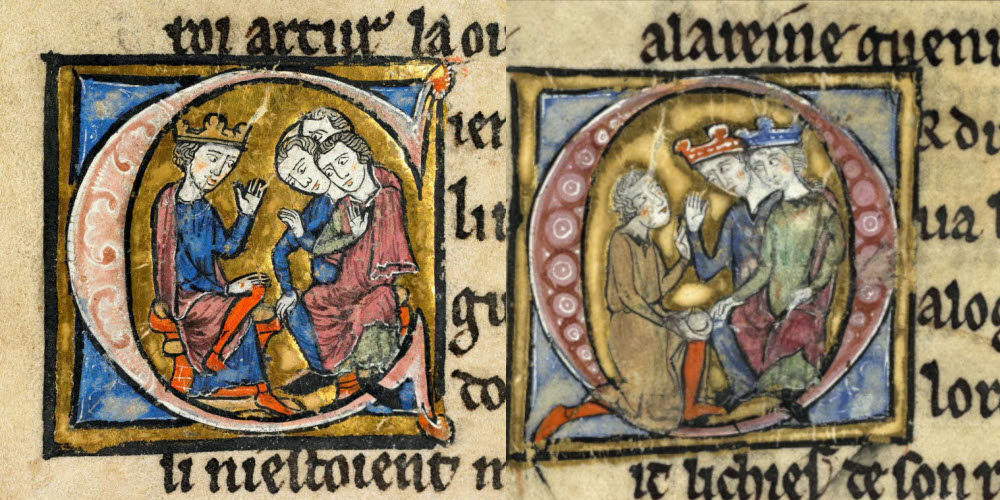 roi artur la ou
C
ier
li n
gu
do
li niestoient m
a la reine gueni
O
& du
ua l
alog
lor
it li chies de son